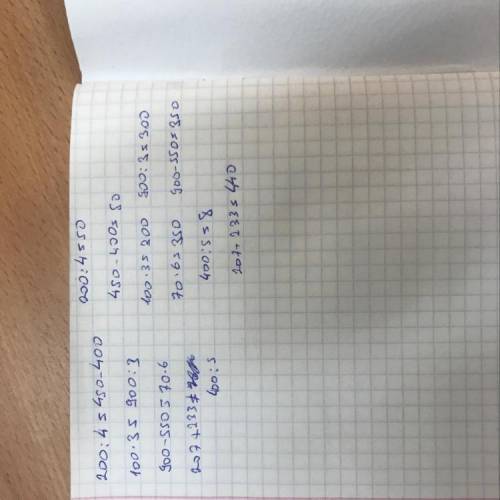 200:4=450-400
100·3=900:3
900-550=70·6
207+233≠
400:5
200:4=50
450-400=50
100·3=200 900:3=300
70·6=350 900-550=350
400:5=8
207+233=440